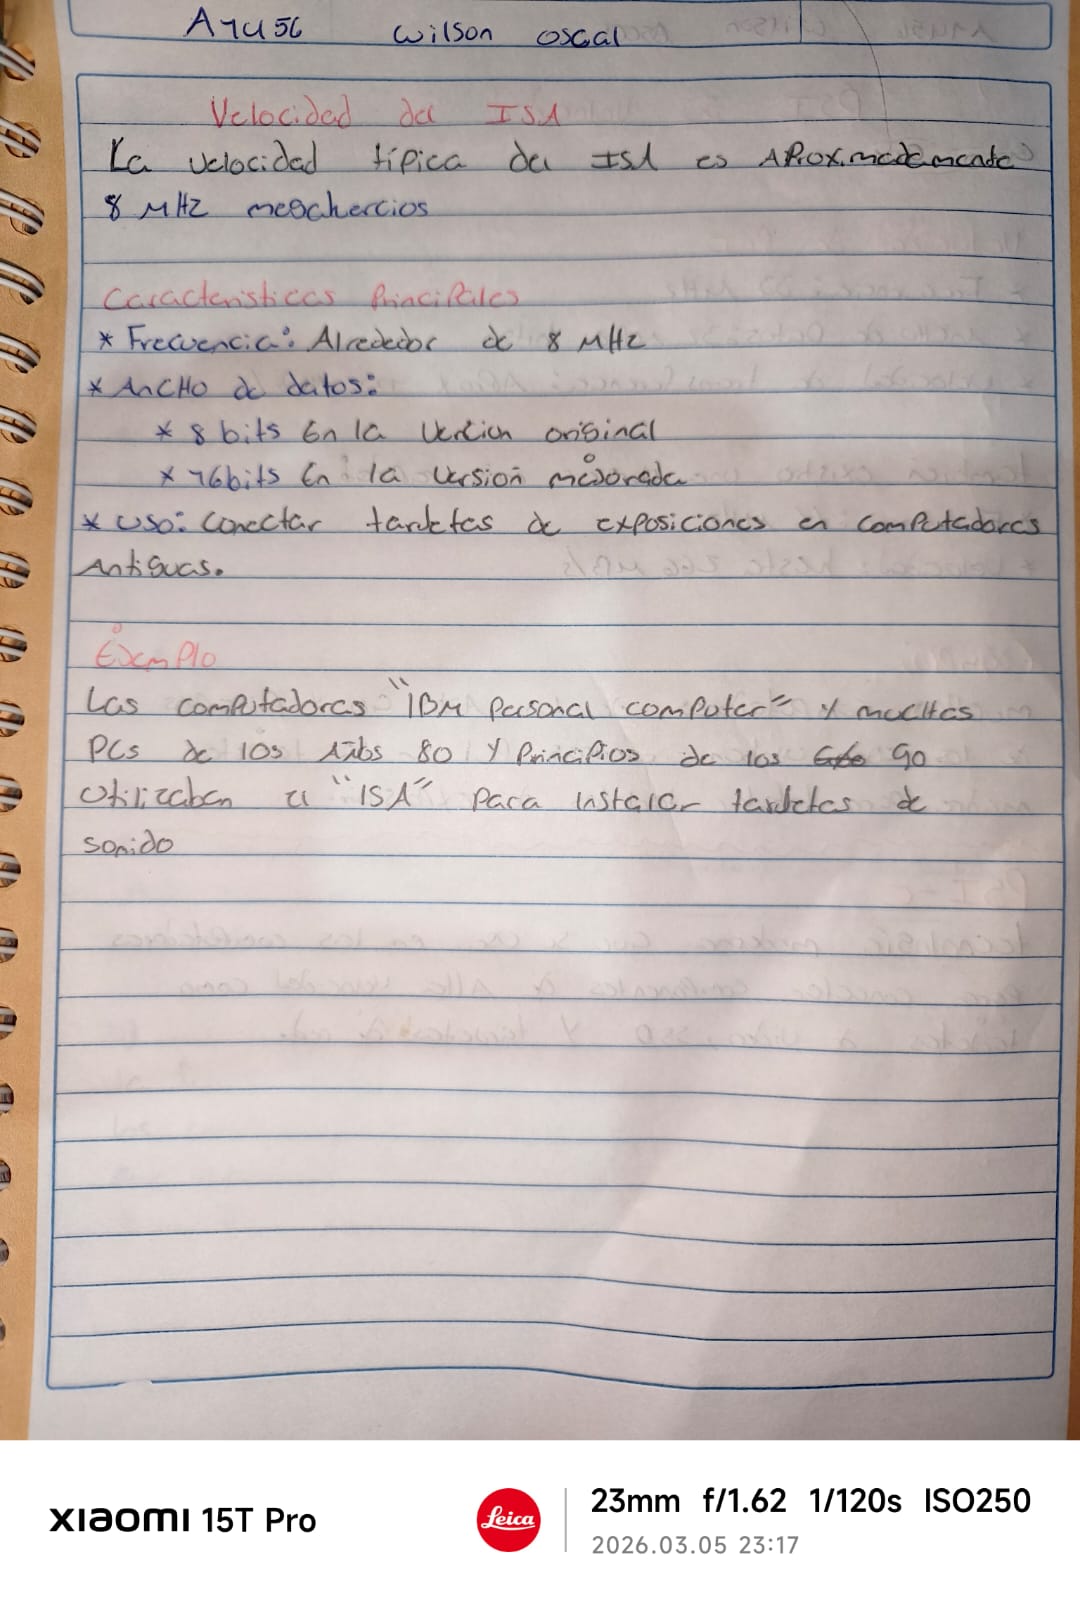 A1456 Wilson oscal
Velocidad del ISA
La velocidad típica del ISA es Aproximadamente
8 MHz megahercios
Caracteristicas Principales
* Frecuencia: Alrededor de 8 MHz
* Ancho de datos:
* 8 bits En la Vertion original
* 16bits En la versión mejorada
* Uso: Conectar tarjetas de exposiciones en computadores
Antiguas.
Ejemplo
Las computadoras "IBM Personal computer" y muchas
PCs de los Años 80 y Principios de los 90
Utilizaban el "ISA" Para instalar tarjetas de
sonido
XIAOMI 15T Pro
Leica
23mm f/1.62 1/120s ISO250
2026.03.05 23:17